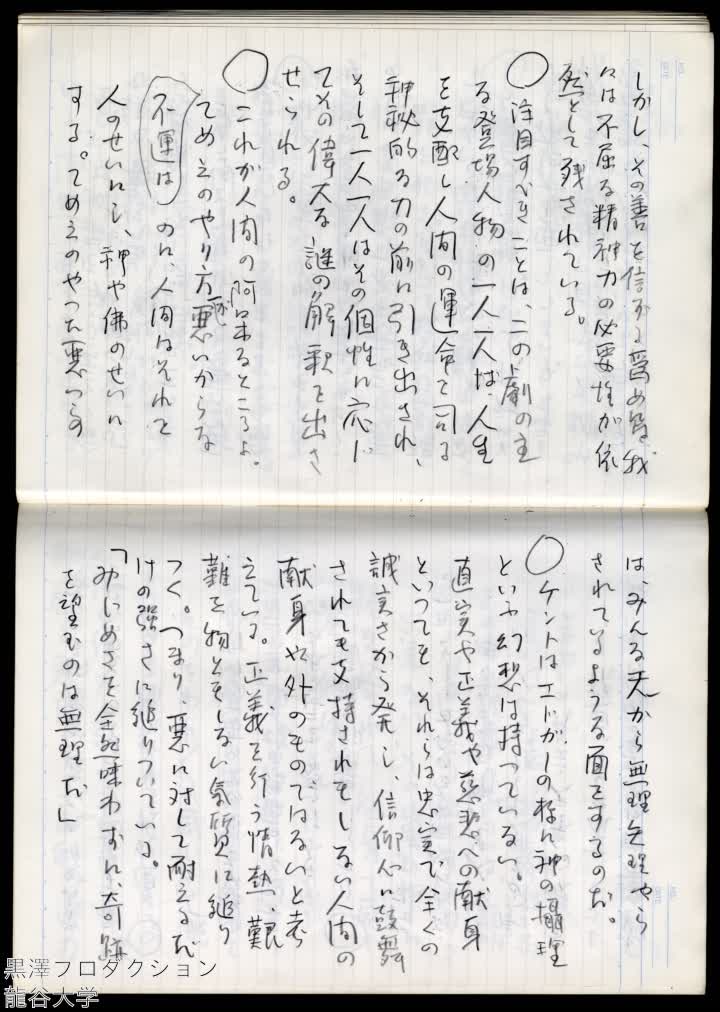 しかし、その善を信ずる為め、我
々は不屈な精神力の必要性が依
然として残されている。
○注目すべきことは、この劇の主
な登場人物の一人一人は、人生
を支配し人間の運命を司る
神秘的な力の前に引き出され、
そして一人一人はその個性に応じ
てその偉大な謎の解釈を出さ
せられる。
○これが人間の阿呆なところよ。
てめえのやり方が悪いから
不運は
のに、人間はそれを
人のせいにし、神や佛のせいに
する。てめえのやった悪い
は、みんな天から無理矢理やら
されているような面をするのだ。
○ケントはエドガーの様に神の摂理
といふ幻想は持っていない。
直実や正義や慈悲への献身
といっても、それらは忠実で全くの
誠実さから発し、信仰心に鼓舞
されても支持されもしない人間の
献身や外のものではないと考
えている。正義を行う情熱、艱
難を物ともしない気質に縋り
つく。つまり、悪に対して耐えるだ
けの強さに縋りついている。
「みじめさを全然味わずに、奇跡
を望むのは無理だ」
黒澤プロダクション
龍谷大学